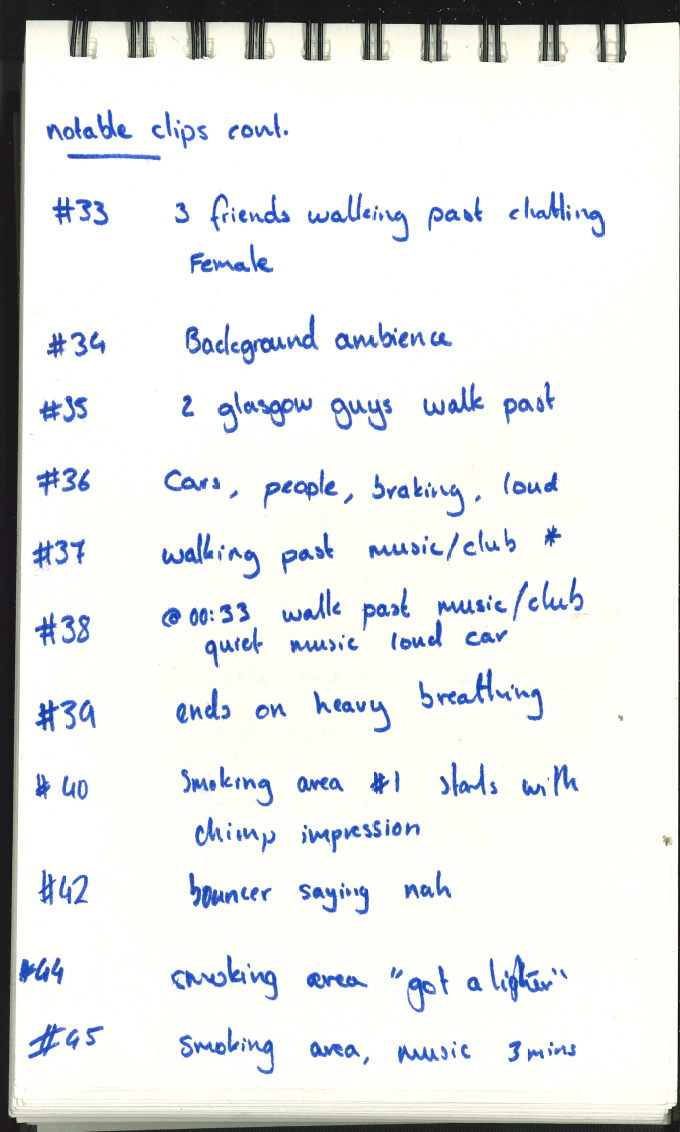 notable clips cont.
#33 3 friends walking past chatting
Female
#34 Background ambience
#35 2 glasgow guys walk past
#36 Cars, people, braking, loud
#37 walking past music/club *
#38 @ 00:33 walk past music/club
quiet music loud car
#39 ends on heavy breathing
#40 Smoking area #1 starts with
chimp impression
#42 bouncer saying nah
#44 smoking area "got a lighter"
#45 Smoking area, music 3 mins